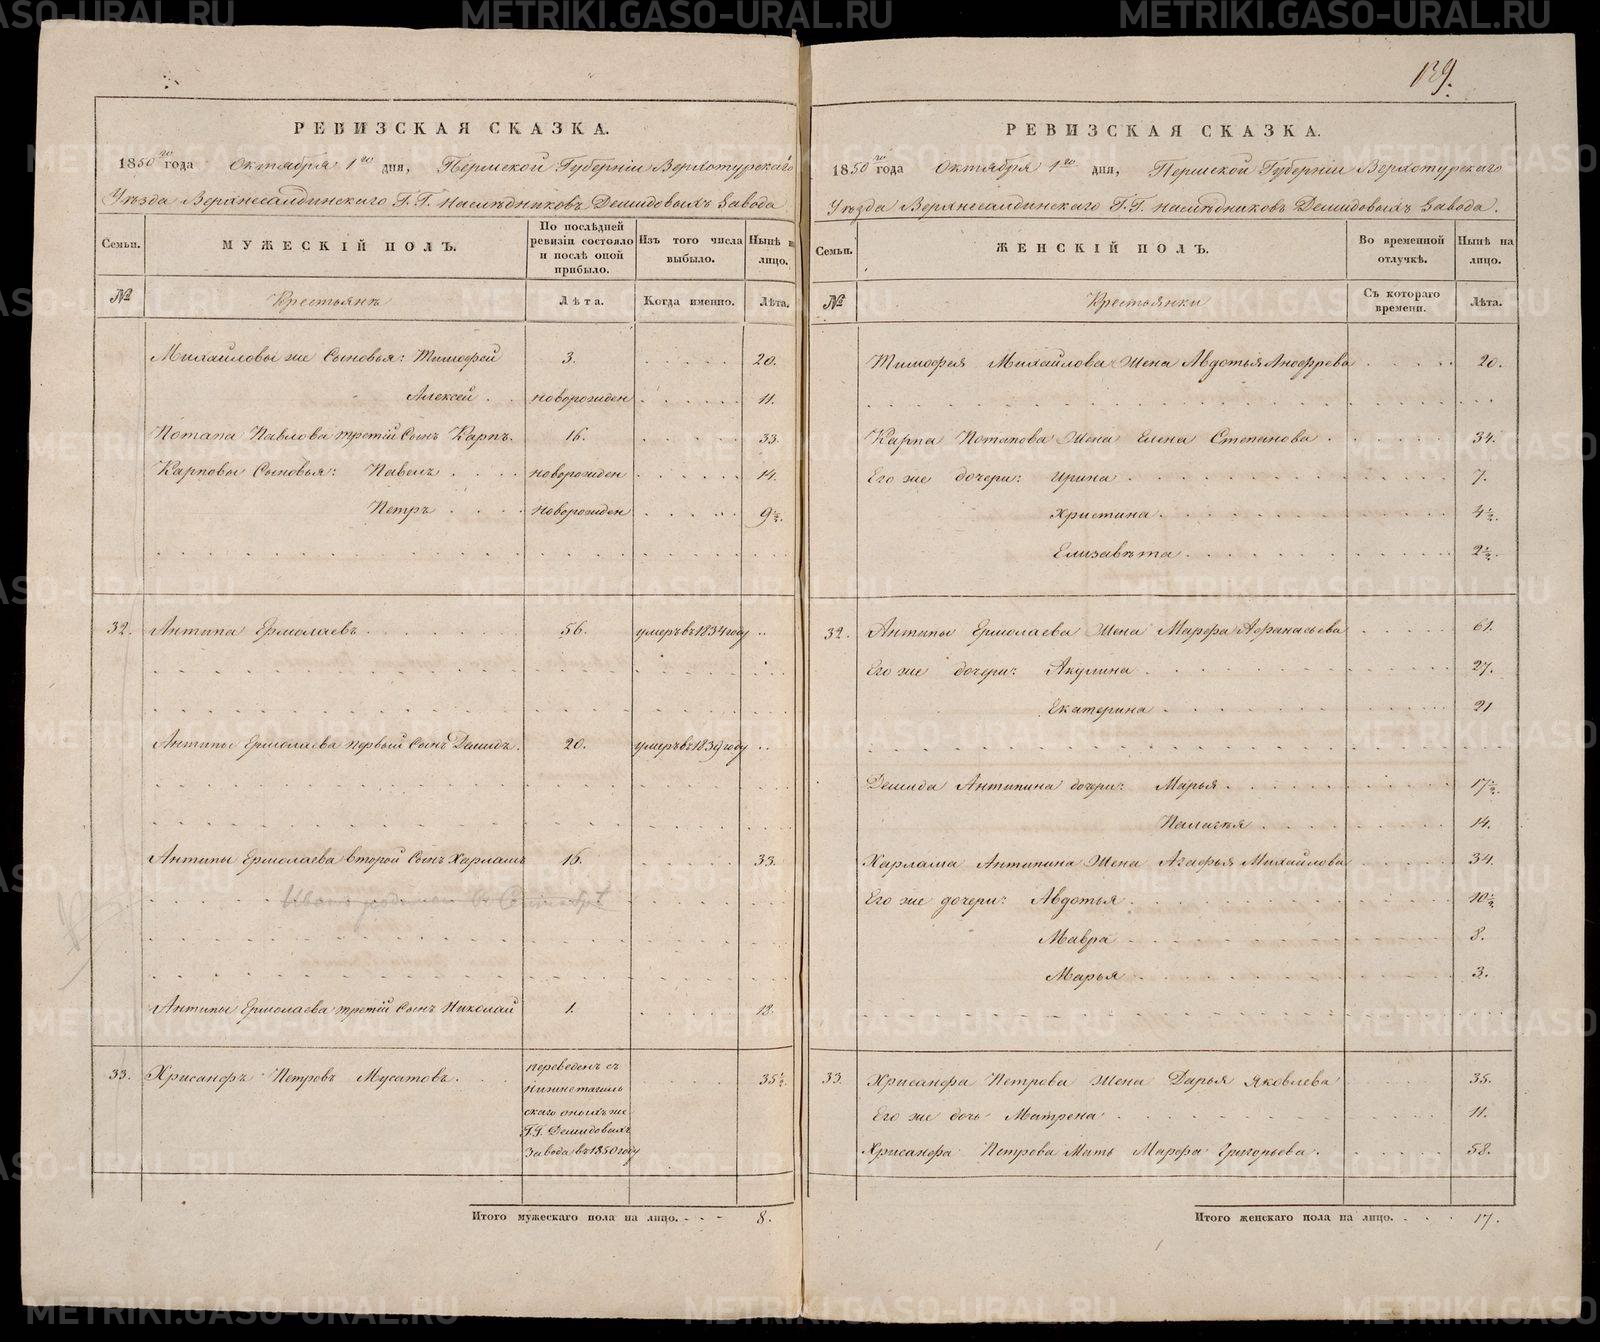 139.
РЕВИЗСКАЯ СКАЗКА.
1850го года Октября 1го дня, Пермской Губерніи Верхотурскаго
Уѣзда Верхнесалдинскаго Г.Г. Наслѣдниковъ Демидовыхъ Завода
Семьи. МУЖЕСКІЙ ПОЛЪ. По послѣдней ревизіи состояло и послѣ оной прибыло. Изъ того числа выбыло. Нынѣ на лицо.
№ Крестьянъ Лѣта. Когда именно. Лѣта.
Михайловы же Сыновья: Тимофей 3. 20.
Алексей новорожден 11.
Потапа Павлова третій Сынъ Карпъ. 16. 33.
Карповы Сыновья: Павелъ новорожден 14.
Петръ новорожден 9½.
32. Антипа Ермолаевъ 56. умеръ въ 1834 году
Антипы Ермолаева первый Сынъ Демидъ. 20. умеръ въ 1839 году
Антипы Ермолаева второй Сынъ Харламъ 16. 33.
Антипы Ермолаева третій Сынъ Николай 1. 18.
33. Хрисанфъ Петровъ Мусатовъ. переведенъ съ 35½.
Нижнетагиль
скаго оныхъ же
Г.Г. Демидовыхъ
Завода въ 1850 году
Итого мужескаго пола на лицо. 8.
РЕВИЗСКАЯ СКАЗКА.
1850го года Октября 1го дня, Пермской Губерніи Верхотурскаго
Уѣзда Верхнесалдинскаго Г.Г. Наслѣдниковъ Демидовыхъ Завода.
Семьи. ЖЕНСКІЙ ПОЛЪ. Во временной отлучкѣ. Нынѣ на лицо.
№ Крестьянки Съ котораго времени. Лѣта.
Тимофея Михайлова Жена Авдотья Анофрева 20.
Карпа Потапова Жена Елена Степанова 34.
Его же дочери: Ирина 7.
Христина 4½.
Елизавѣта 2½.
32. Антипы Ермолаева Жена Марфа Афанасьева 61.
Его же дочери: Акулина 27.
Екатерина 21
Демида Антипина дочери: Марья 17½.
Пелагѣя 14.
Харлама Антипина Жена Агафья Михайлова 34.
Его же дочери: Авдотья 10½.
Мавра 8.
Марья 3.
33. Хрисанфа Петрова Жена Дарья Яковлева 35.
Его же дочь Матрена 11.
Хрисанфа Петрова Мать Марфа Григорьева. 58.
Итого женскаго пола на лицо. 17.
METRIKI.GASO-URAL.RU